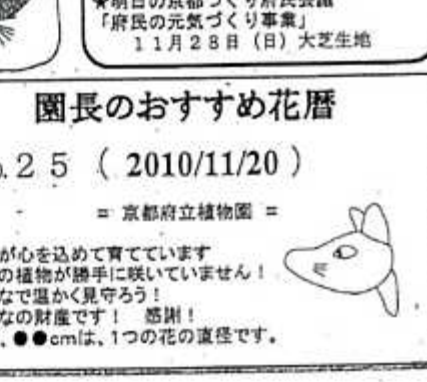 ★明日の京都づくり府民会議
「府民の元気づくり事業」
11月28日（日）大芝生地
園長のおすすめ花暦
.25（2010/11/20）
= 京都府立植物園 =
が心を込めて育てています
の植物が勝手に咲いていません！
なで温かく見守ろう！
なの財産です！ 感謝！
、●●cmは、1つの花の直径です。